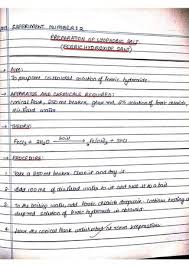 EXPERIMENT NUMBER: 2
PREPARATION OF LYOPHOBIC SOL
(FERRIC HYDROXIDE SOL)
AIM:
To prepare colloidal solution of ferric hydroxide.
APPARATUS AND CHEMICALS REQUIRED:
conical flask, 250ml beaker, glass rod, 2% solution of ferric chloride,
distilled water
THEORY:
FeCl3 + 3H2O boil Fe(OH)3 + 3HCl
PROCEDURE:
1. Take a 250ml beaker. Clean it and dry it
2. Add 100ml of distilled water to it and heat it to a boil
3. To the boiling water, add ferric chloride dropwise. Continue heating until
deep red solution of ferric hydroxide is obtained
4. Leave the conical flask undisturbed at room temperature